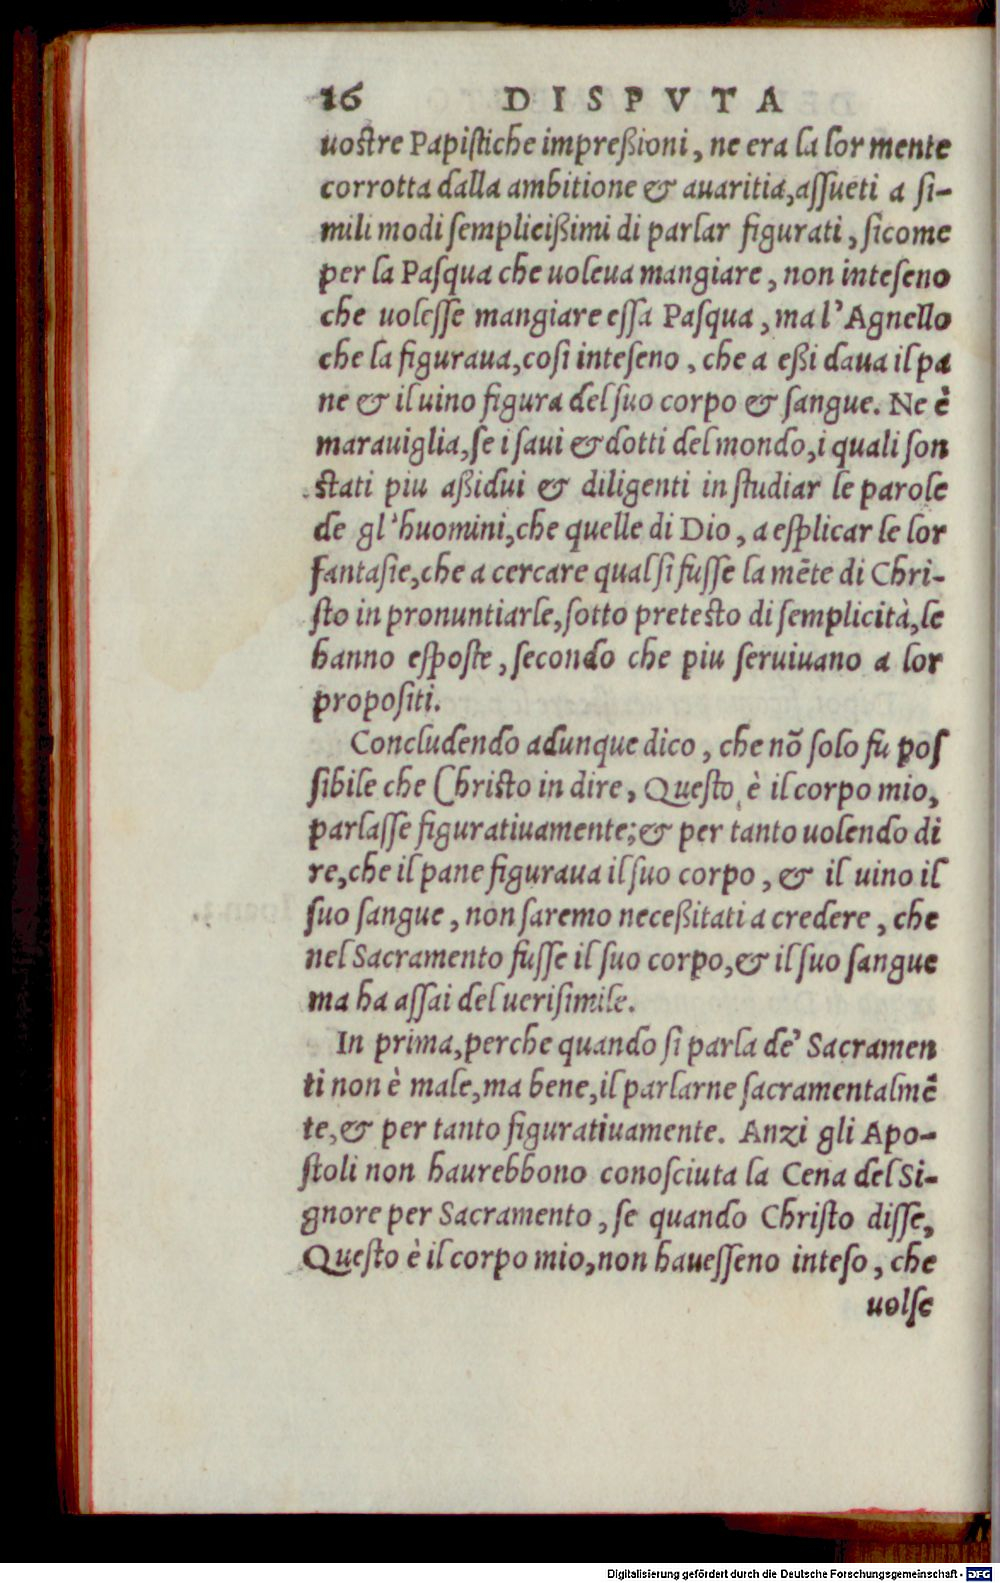 16 DISPVTA
uostre Papistiche impreßioni, ne era la lor mente
corrotta dalla ambitione & auaritia, assueti a si-
mili modi semplicißimi di parlar figurati, sicome
per la Pasqua che uoleua mangiare, non inteseno
che uolesse mangiare essa Pasqua, ma l'Agnello
che la figuraua, cosi inteseno, che a eßi daua il pa
ne & il uino figura del suo corpo & sangue. Ne è
marauiglia, se i saui & dotti del mondo, i quali son
stati piu aßidui & diligenti in studiar le parole
de gl'huomini, che quelle di Dio, a esplicar le lor
fantasie, che a cercare qual si fusse la mẽte di Chri-
sto in pronuntiarle, sotto pretesto di semplicità, le
hanno esposte, secondo che piu seruiuano a lor
propositi.
Concludendo adunque dico, che nõ solo fu pos
sibile che Christo in dire, Questo è il corpo mio,
parlasse figuratiuamente; & per tanto uolendo di
re, che il pane figuraua il suo corpo, & il uino il
suo sangue, non saremo neceßitati a credere, che
nel Sacramento fusse il suo corpo, & il suo sangue
ma ha assai del uerisimile.
In prima, perche quando si parla de' Sacramen
ti non è male, ma bene, il parlarne sacramentalmẽ
te, & per tanto figuratiuamente. Anzi gli Apo-
stoli non haurebbono conosciuta la Cena del Si-
gnore per Sacramento, se quando Christo disse,
Questo è il corpo mio, non hauesseno inteso, che
uolse
Digitalisierung gefördert durch die Deutsche Forschungsgemeinschaft - DFG